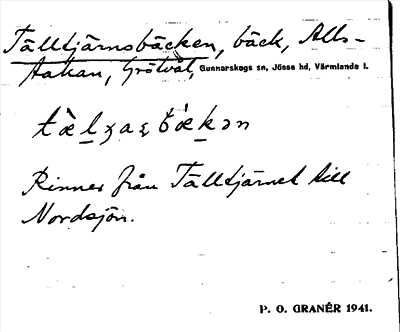 Tälltjärnsbäcken, bäck, Alls-
takan, Grötvål, Gunnarskogs sn, Jösse hd, Värmlands l.
Rinner från Tälltjärnet till
Nordsjön.
P. O. GRANÉR 1941.